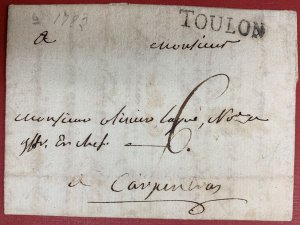 1783
TOULON
a Monsieur
Monsieur olivier
en chef
a Carpentras